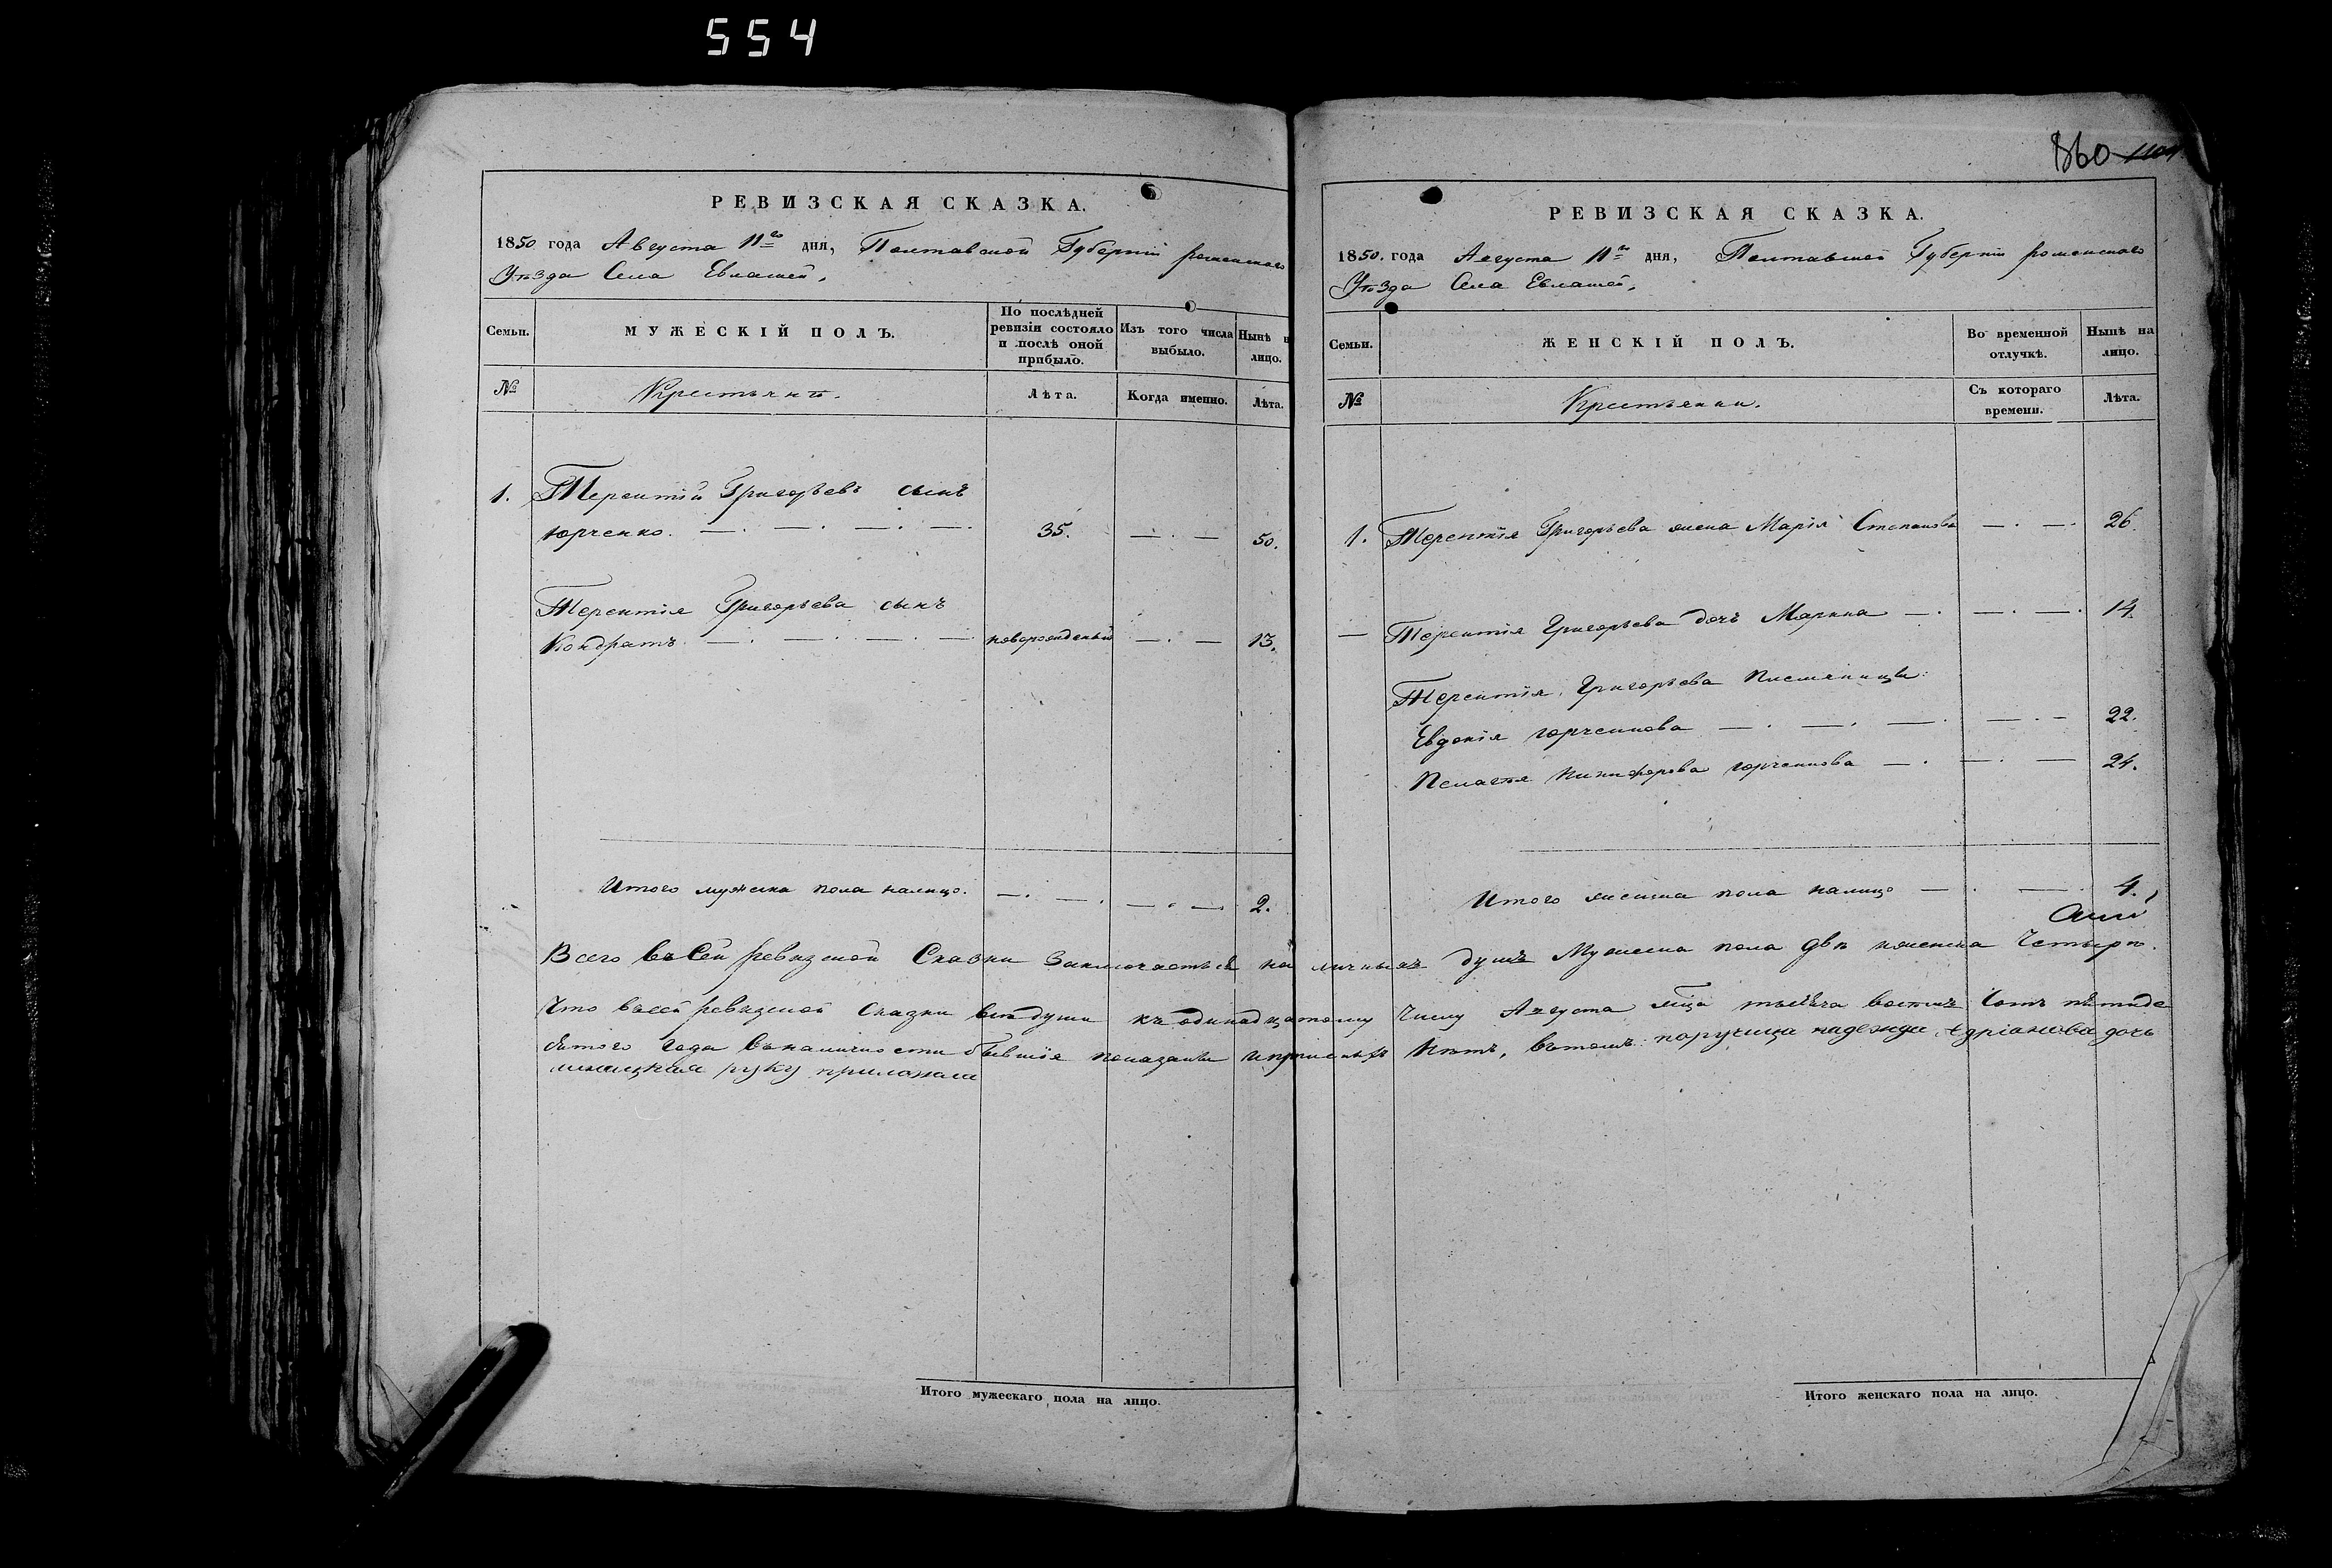 554
860 1104
РЕВИЗСКАЯ СКАЗКА.
1850 года Августа 11го дня, Полтавской Губерніи роменского
Уѣзда Села Евлашей.
Семьи. МУЖЕСКІЙ ПОЛЪ. По послѣдней ревизіи состояло и послѣ оной прибыло. Изъ того числа выбыло. Нынѣ н лицо.
№ Крестьянъ. Лѣта. Когда именно. Лѣта.
1. Терентій Григорьевъ сынъ
юрченко. — . — . — . — . 35. — . — 50.
Терентія Григорьева сынъ
Кондратъ — . — . — . — новорожденый — . — 13.
Итого мужска пола налицо. — . — . — . — . 2.
РЕВИЗСКАЯ СКАЗКА.
1850. года Августа 11го дня, Полтавшей Губерніи роменского
Уѣзда Села Евлашей.
Семьи. ЖЕНСКІЙ ПОЛЪ. Во временной отлучкѣ. Нынѣ на лицо.
№ Крестьянки. Съ котораго времени. Лѣта.
1. Терентія Григорьева жена Марія Степанова — . — . 26.
— Терентія Григорьева дочь Марина — . — . — . 14
Терентія Григорьева Племяницы:
Евдокія юрченкова — . — . — . — . — 22.
Пелагѣя Никифорова юрченкова — . — . — 24.
Итого женска пола налицо — . — . 4.
Всего въ Сей ревизской Сказки Заключается на личныхъ душъ Мужеска пола двѣ женска Четыри.
Что въсей ревизской Сказки всѣ души къ одинадцатому Числу Августа мца тысѣча восимъ Сотъ пѣтиде
сятого Года вналичности бывшія показаны ипрописныхъ Нѣтъ, вътомъ: поручица надежда Адріанова дочь
руку приложила
Итого мужескаго пола на лицо.
Итого женскаго пола на лицо.